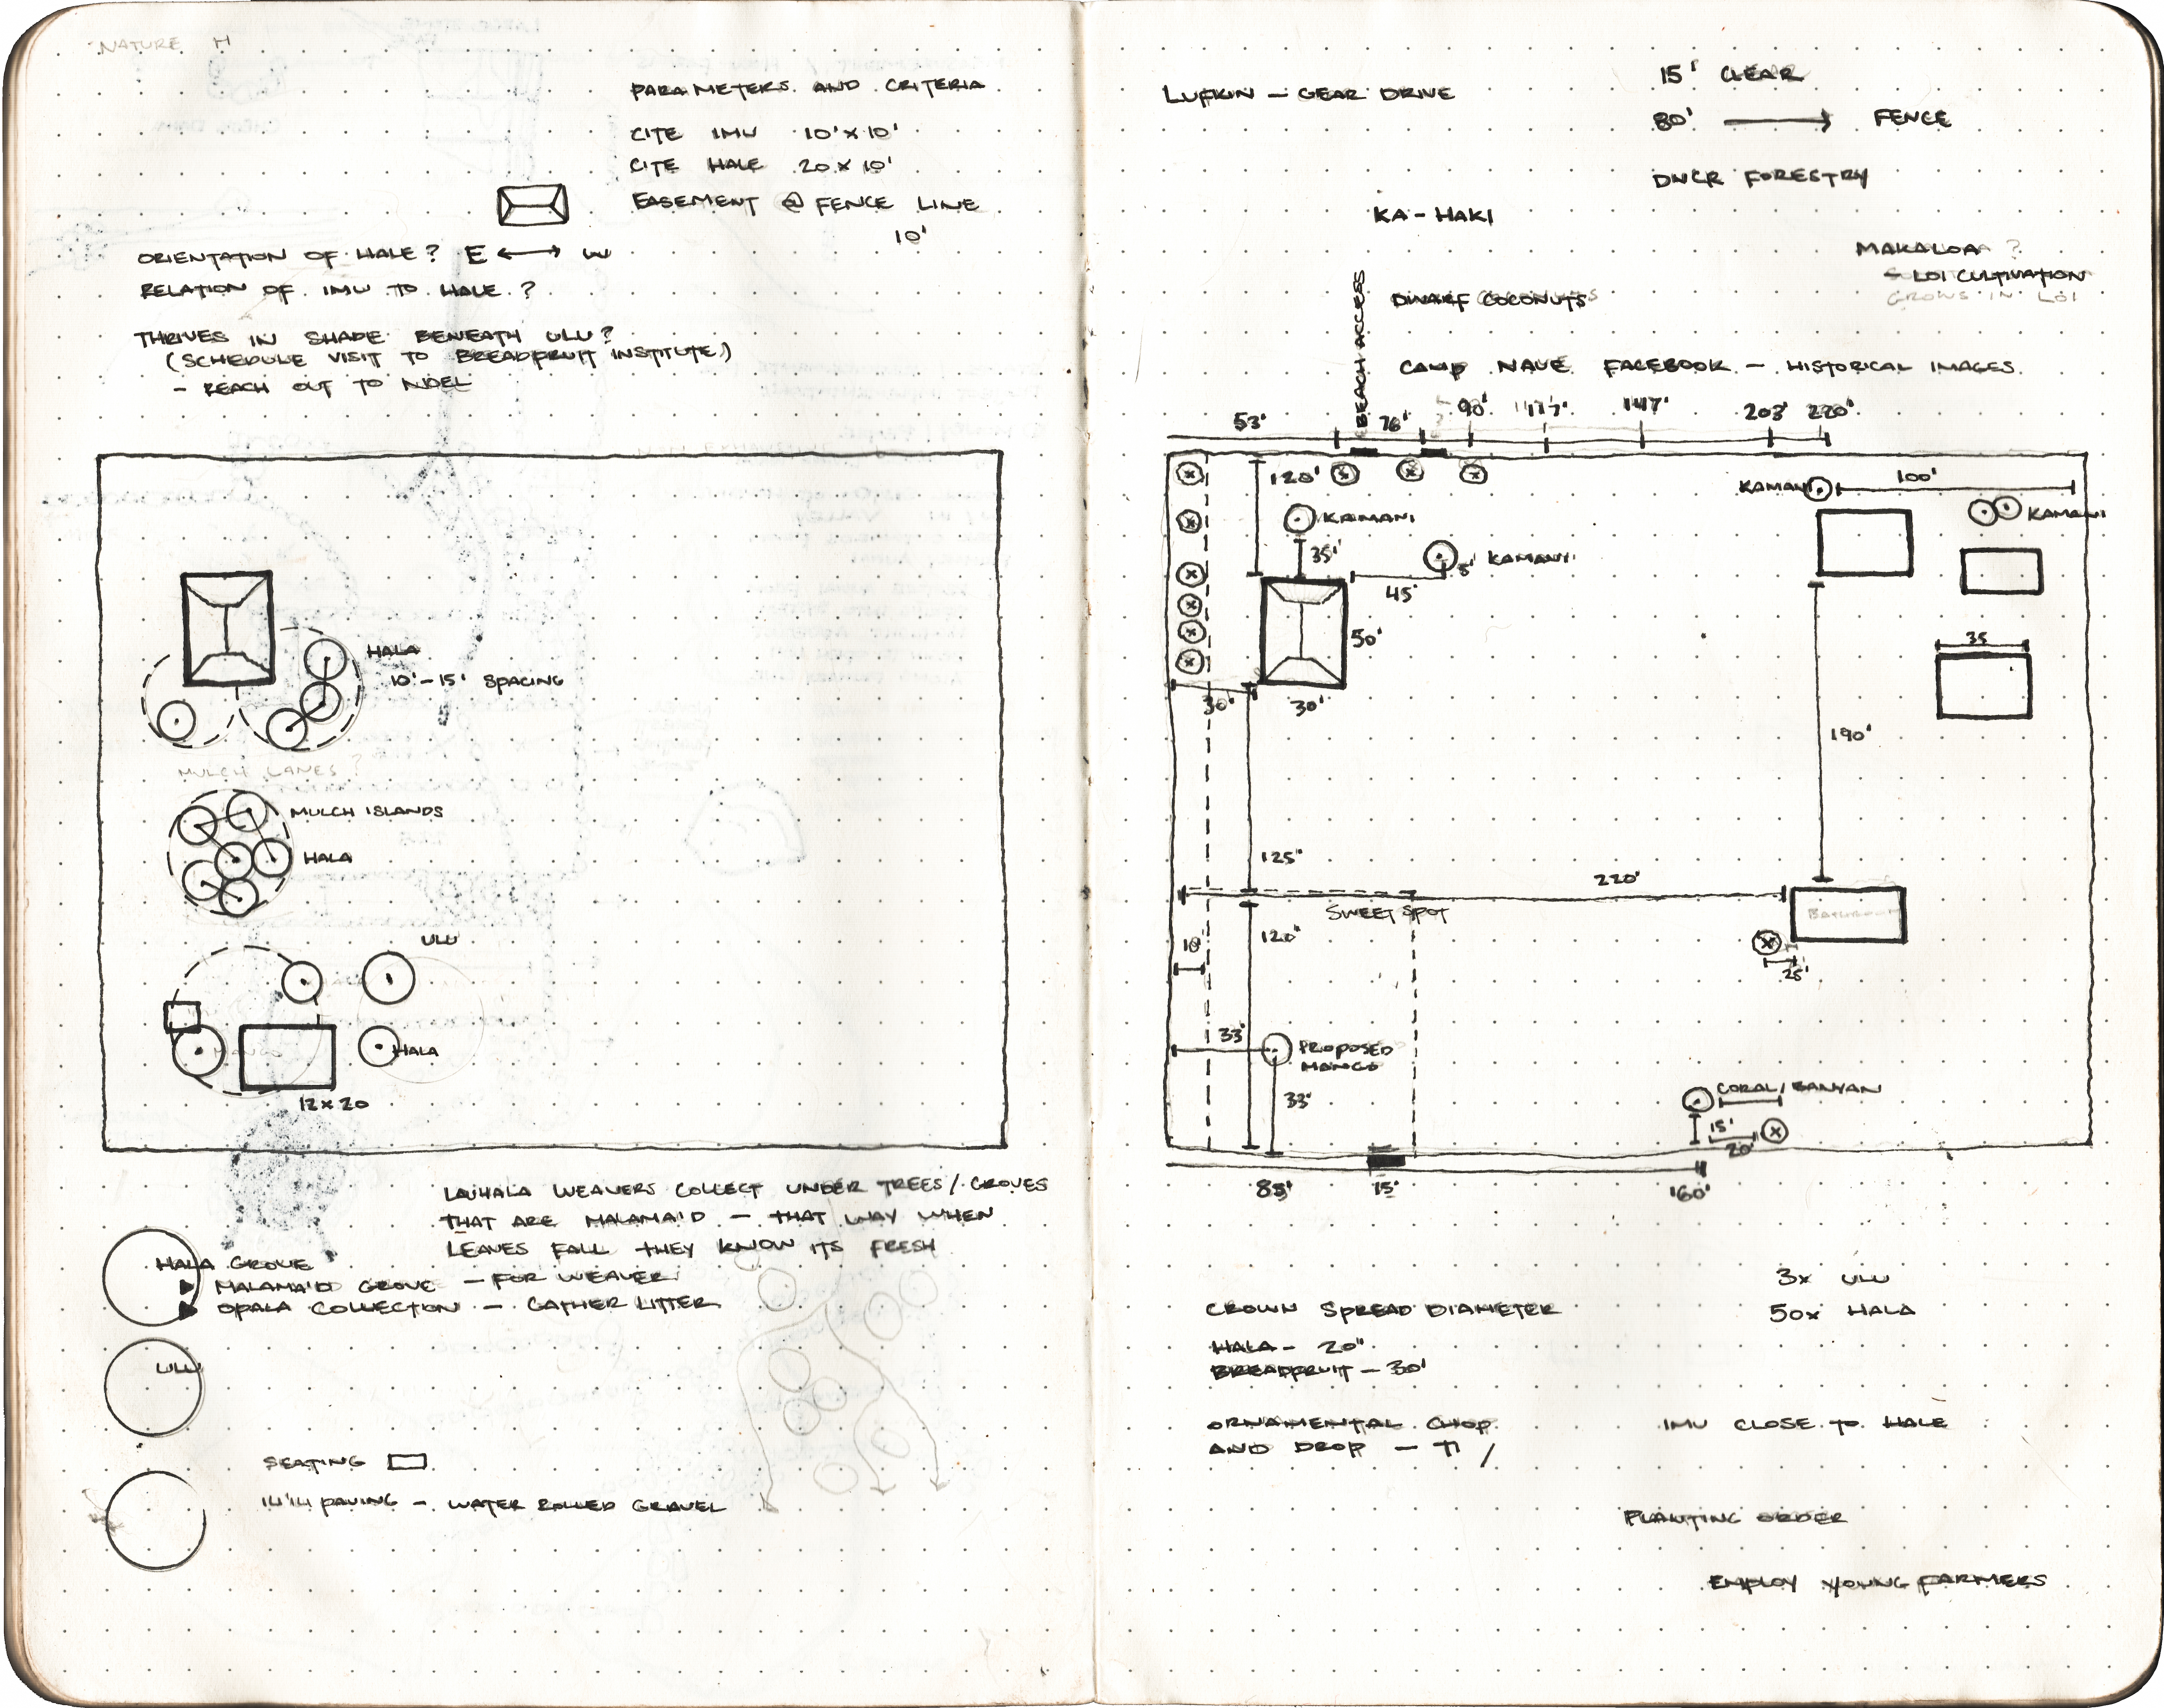 NATURE H
PARAMETERS AND CRITERIA
CITE IMU 10'X10'
CITE HALE 20X10'
EASEMENT @ FENCE LINE
10'
ORIENTATION OF HALE? E ⟷ W
RELATION OF IMU TO HALE ?
THRIVES IN SHADE BENEATH ULU?
(SCHEDULE VISIT TO BREADFRUIT INSTITUTE)
- REACH OUT TO
HALA
10'-15' SPACING
MULCH LANES ?
MULCH ISLANDS
HALA
ULU
MANGO
HALA
12X20
LAUHALA WEAVERS COLLECT UNDER TREES/GROVES
THAT ARE MALAMA'D - THAT WAY WHEN
LEAVES FALL THEY KNOW ITS FRESH
HALA GROVE
▶ MALAMA'D GROVE - FOR WEAVER
▶ OPALA COLLECTION - GATHER LITTER
ULU
SEATING
PAVING - WATER ROLLED GRAVEL
LUFKIN - GEAR DRIVE
15' CLEAR
80' ⟶ FENCE
DNCR FORESTRY
KA-HAKI
MAKALOA ?
- LOI CULTIVATION
GROWS IN LOI
BEACH ACCESS
DWARF COCONUTS
CAMP NAUE FACEBOOK - HISTORICAL IMAGES
53' 76' 90' 117' 147' 203' 220'
120'
KAMANI
35'
KAMANI
5'
45'
50'
30'
30'
KAMANI
100'
KAMANI
35
190'
125'
220'
SWEET SPOT
BATHROOM
120'
10'
25'
33'
PROPOSED
MANGO
33'
CORAL/BANYAN
15'
20'
85'
15'
160'
CROWN SPREAD DIAMETER
HALA - 20"
BREADFRUIT - 30'
3X ULU
50X HALA
ORNAMENTAL CHOP
AND DROP - TI /
IMU CLOSE TO HALE
PLANTING ORDER
EMPLOY YOUNG FARMERS